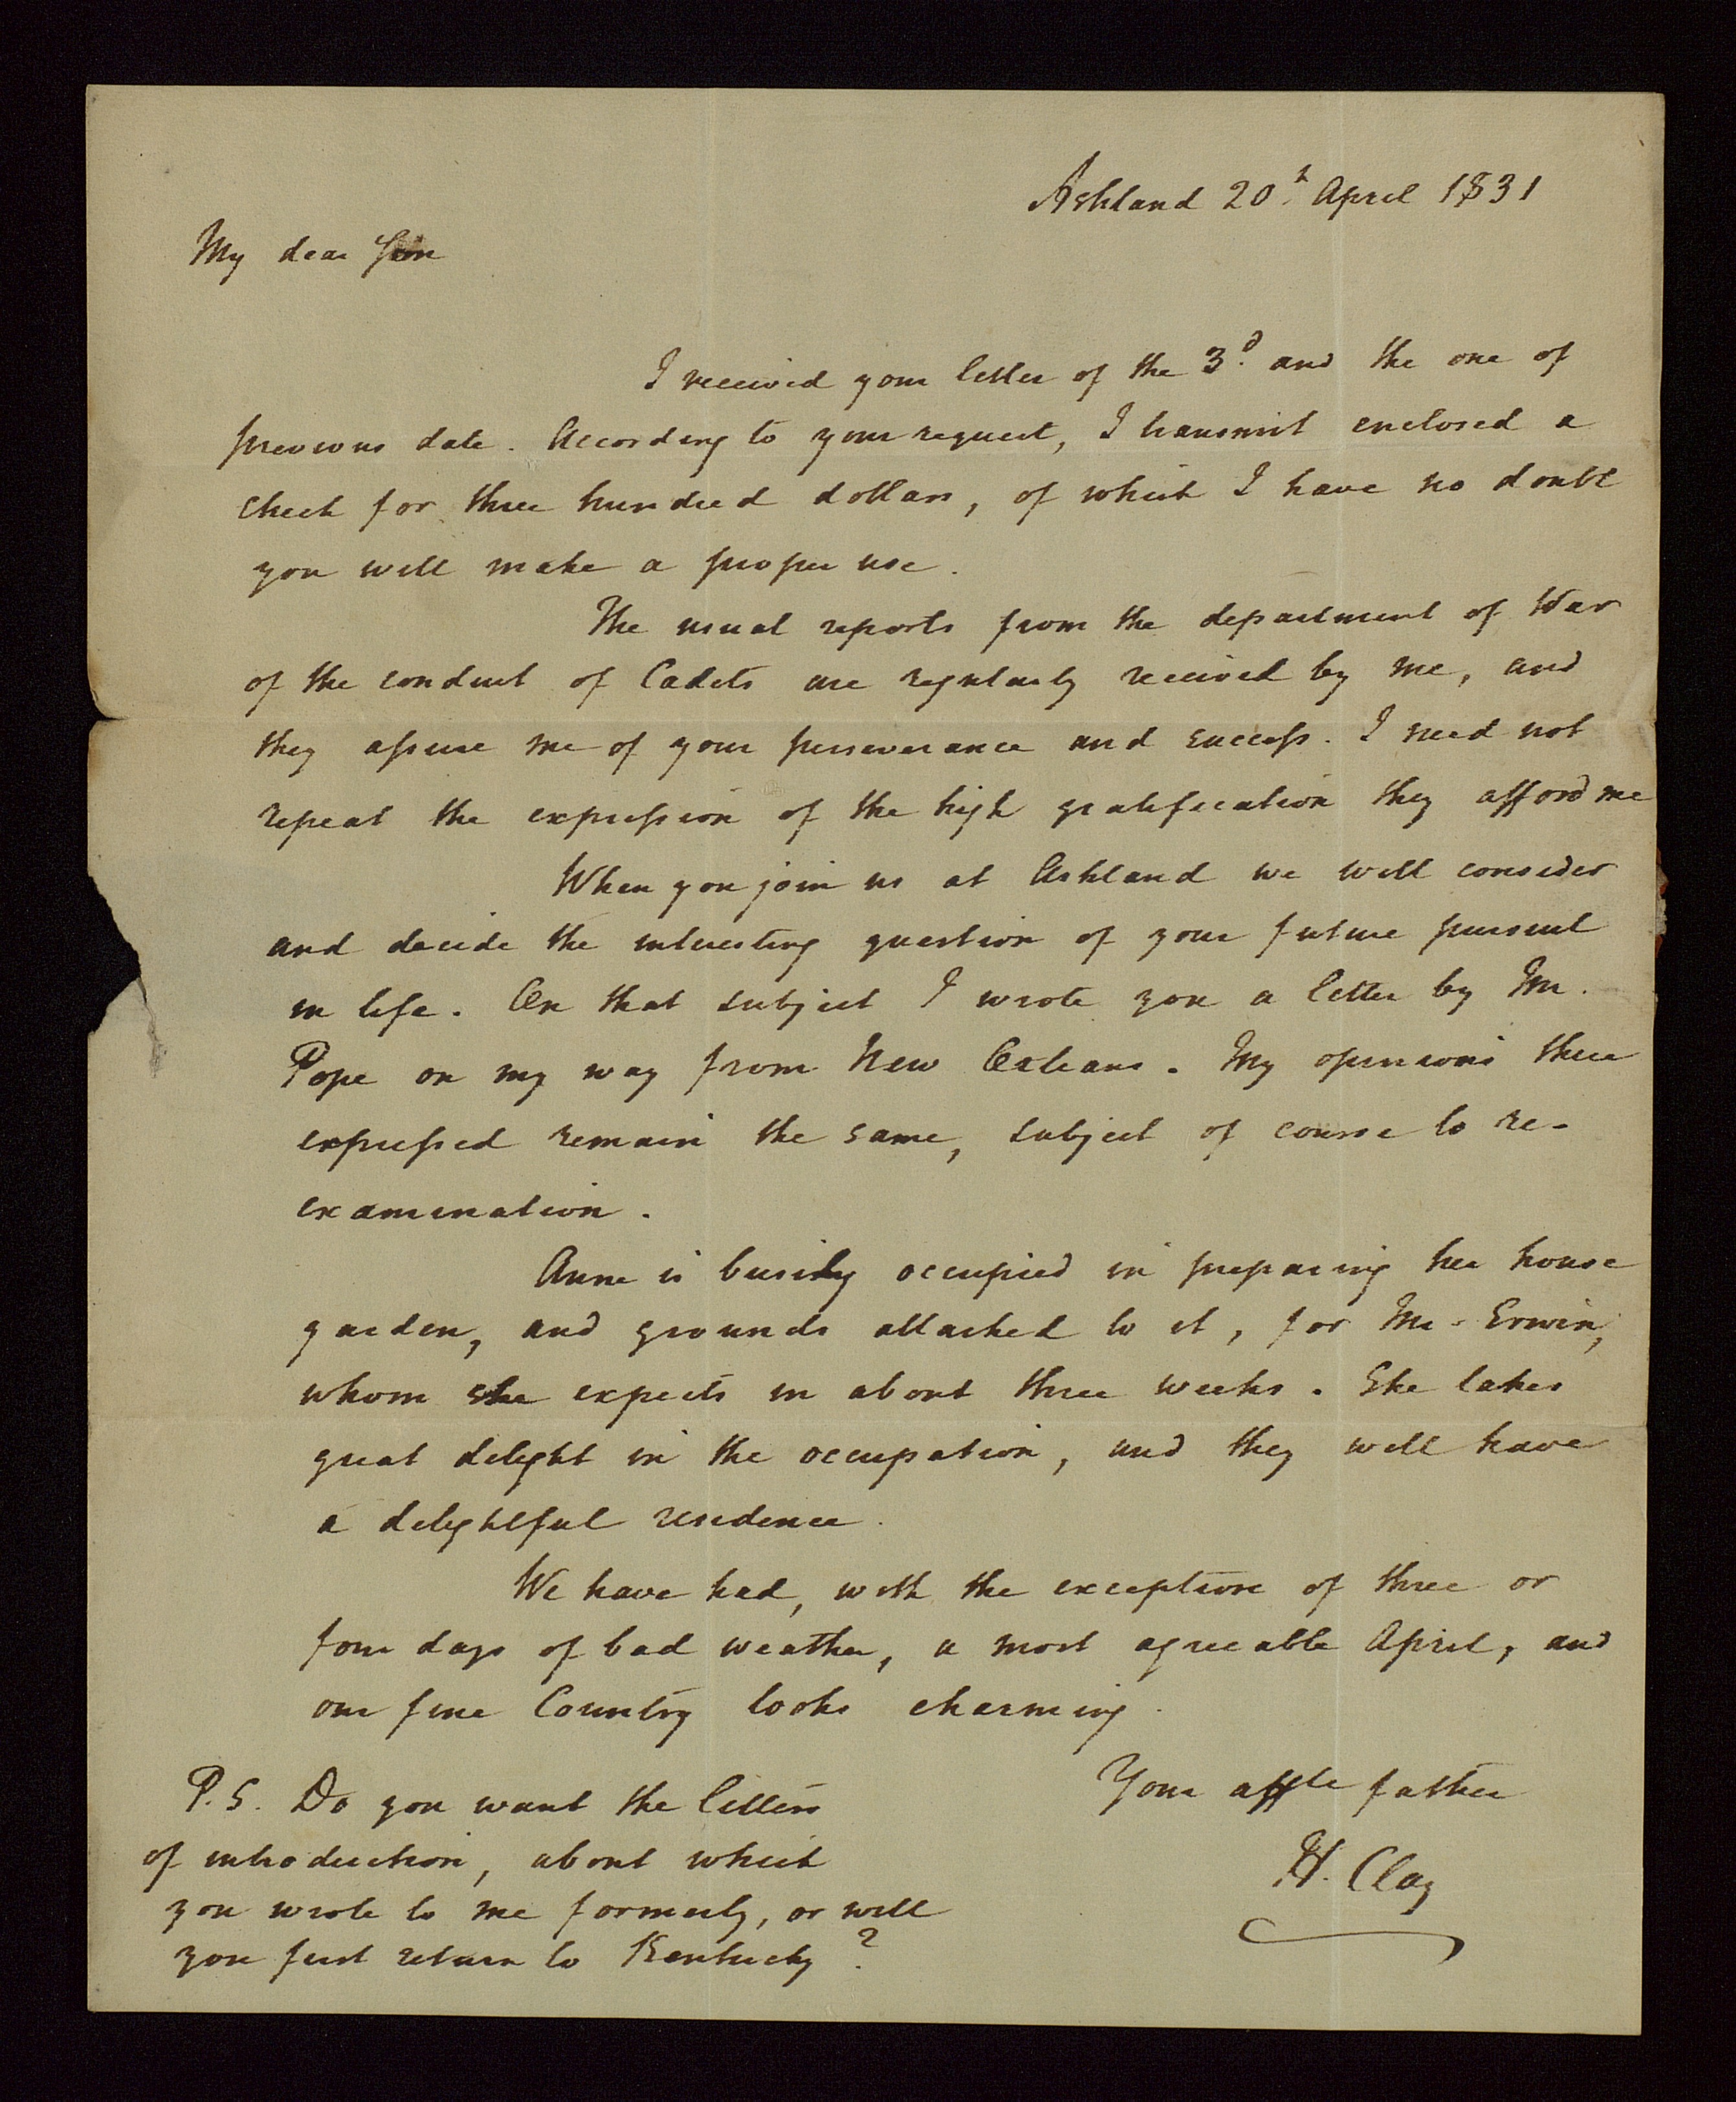 Ashland 20h. April 1831
My dear Son
I received your letter of the 3d. and the one of
previous date. According to your request, I transmit enclosed a
check for three hundred dollars, of which I have no doubt
you will make a proper use.
The usual reports from the department of War
of the conduct of Cadets are regularly received by me, and
they assure me of your perseverance and success. I need not
repeat the expression of the high gratification they afford me
When you join us at Ashland we will consider
and decide the interesting question of your future pursuit
in life. On that subject I wrote you a letter by Mr.
Pope on my way from New Orleans. My opinions there
expressed remain the same, subject of course to re-
examination.
Anne is busily occupied in preparing her house
garden, and grounds attached to it, for Mr. Erwin,
whom she expects in about three weeks. She takes
great delight in the occupation, and they will have
a delightful residence.
We have had, with the exception of three or
four days of bad weather, a most agreeable April, and
our fine Country looks charming.
Your affte father
H. Clay
P.S. Do you want the letters
of introduction, about which
you wrote to me formerly, or will
you first return to Kentucky?